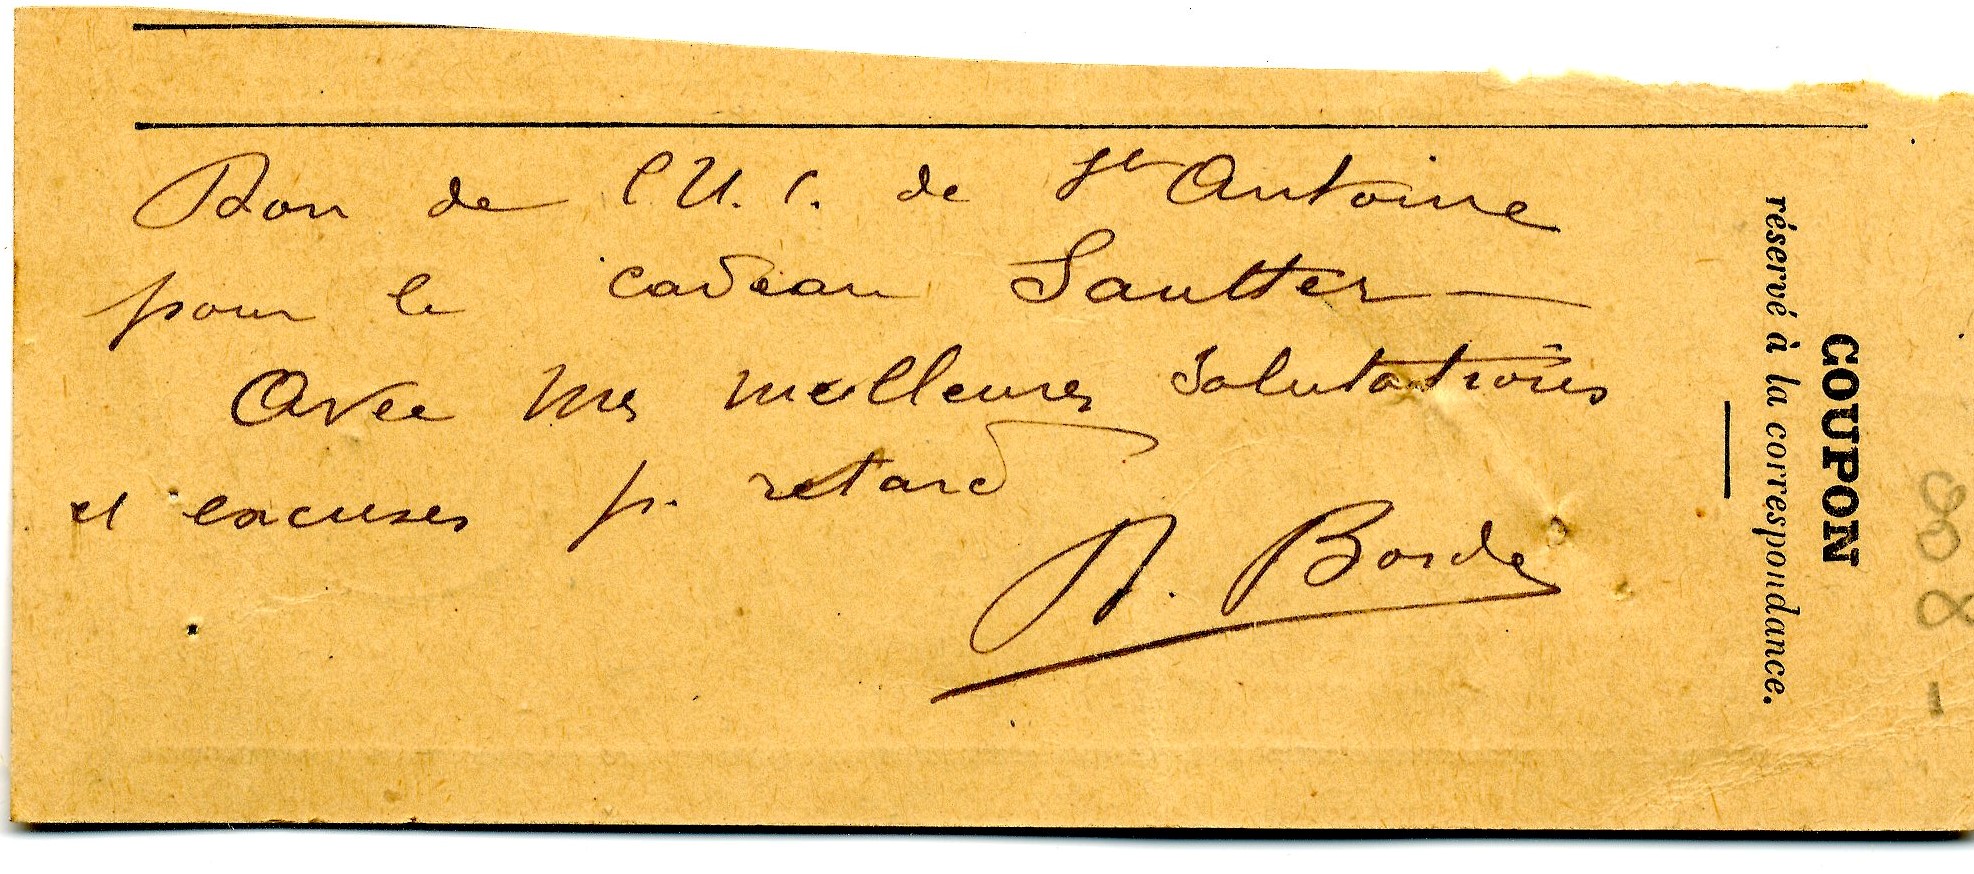 Don de l'U. C. de St Antoine
pour le cadeau Sautter —
Avec mes meilleures salutations
et excuses p. retard
A. Borde
COUPON
réservé à la correspondance.